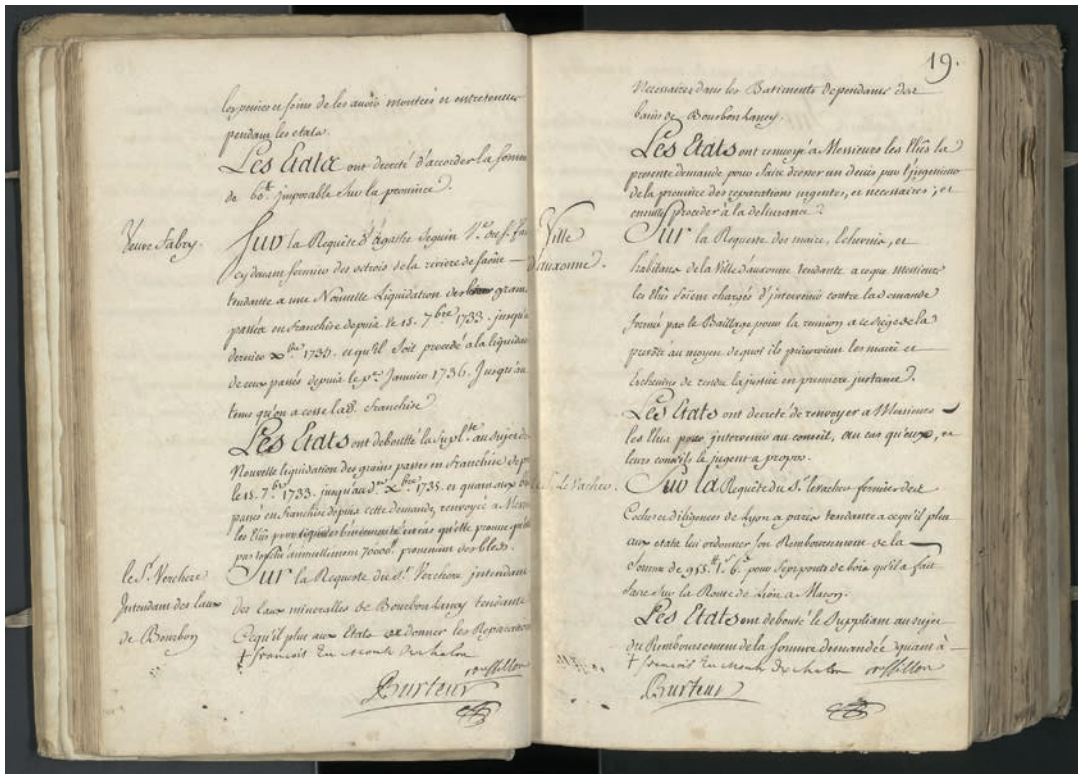 les peines et soins de les avoir montées et entretenues
pendant les etats.
Les Etats ont decreté d'accorder la somme
de 60ᵗᵗ imposable sur la province.
Veuve Fabry.
Sur la Requête d'Agathe Seguin Vᵉ du Sʳ Fab
cy devant fermier des octrois de la riviere de saône —
tendante a une Nouvelle Liquidation des grains
passés en franchise depuis le 15. 7bre 1733. jusqu'au
dernier xbre 1735. et qu'il soit procedé a la liquidation
de ceux passés depuis le pᵉʳ Janvier 1736. Jusqu'au
tems qu'on a cessé lad. franchise
Les Etats ont deboutté la Suplᵗᵉ au sujet de
Nouvelle liquidation des grains passés en franchise depuis
le 15. 7bre 1733. jusqu'au dʳ xbre 1735. et quant aux
passés en franchise depuis cette demande, renvoyé a Mess
les Elûs pour liquider en cas qu'elle prouve qu'il
pas touché annuellement 7000ᵗᵗ provenant des bleds.
le Sʳ. Verchere
Intendant des Eaux
de Bourbon
Sur la Requeste du Sʳ Verchere intendant
des Eaux mineralles de Bourbon Lancy tendante
a ce qu'il plut aux Etats ordonner les Reparations
† françois Ev. comte de chalon
roussillon
Burteur
19.
Necessaires dans les Batiments dependants des
bains de Bourbon Lancy.
Les Etats ont renvoyé a Messieurs les Elûs la
presente demande pour faire dresser un devis par l'ingenieur
de la province des reparations urgentes, et necessaires; et
ensuite proceder à la delivrance.
Ville
d'auxonne.
Sur la Requeste des maire, Echevins, et
habitans de la Ville d'auxonne tendante a ce que Messieurs
les Elûs soient chargés d'intervenir contre la demande
formée par le Bailliage pour la reunion a ce siege de la
prevôté au moyen de quoi ils priveroient les maire et
Echevins de rendre la justice en premiere instance.
Les Etats ont decreté de renvoyer a Messieurs
les Elus pour intervenir au conseil, au cas qu'eux, et
leurs conseils le jugent a propos.
le Sʳ. Levacher.
Sur la Requête du Sʳ levacher fermier des
Coches et diligences de Lyon a paris tendante a ce qu'il plut
aux etats lui ordonner son Remboursement de la
Somme de 955ᵗᵗ 1ˢ 6ᵈ pour Sept ponts de bois qu'il a fait
faire sur la Route de Lion a Macon.
Les Etats ont debouté le Suppliant au sujet
du Remboursement de la somme demandée quant à —
† françois Ev. comte de chalon
roussillon
Burteur